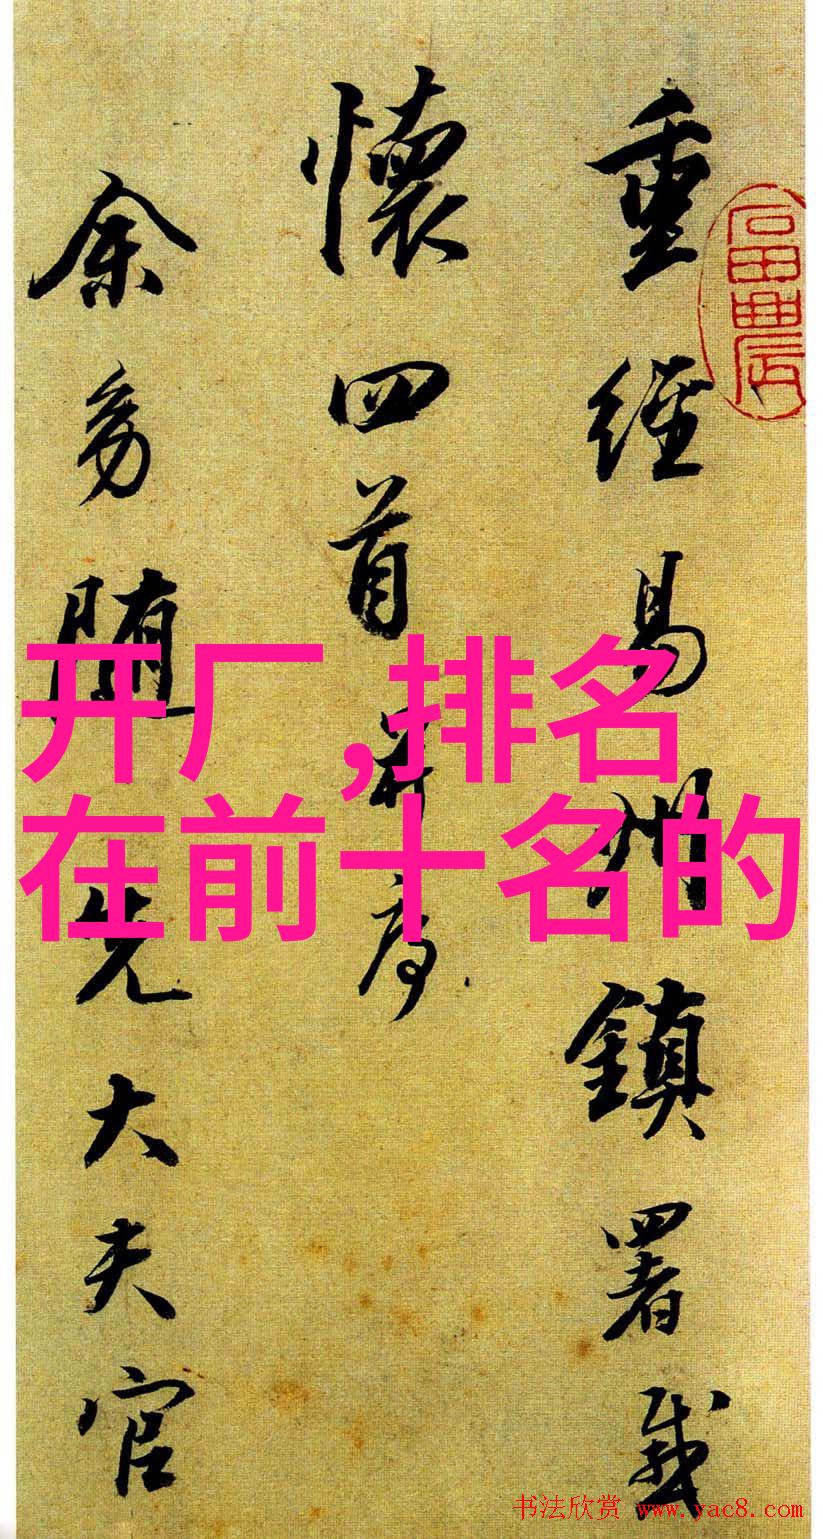 重經易州鎮署感
懷四首并序
余易隨先大夫官
开厂,排名
在前十名的
书法欣赏 www.yac8.com